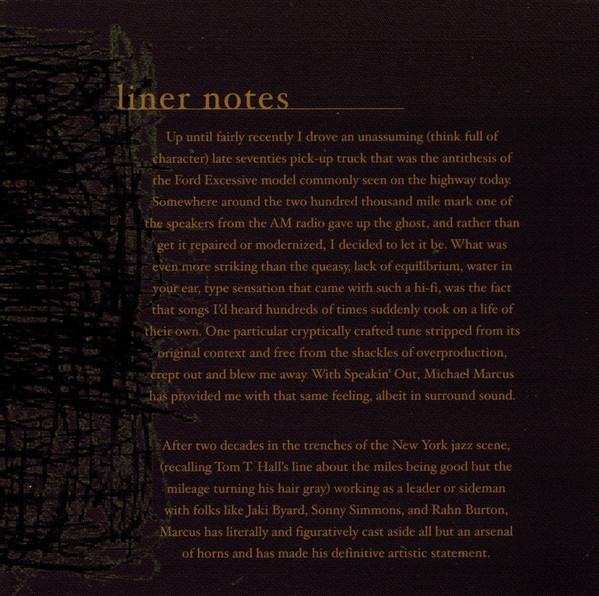 liner notes
Up until fairly recently I drove an unassuming (think full of
character) late seventies pick-up truck that was the antithesis of
the Ford Excessive model commonly seen on the highway today.
Somewhere around the two hundred thousand mile mark one of
the speakers from the AM radio gave up the ghost, and rather than
get it repaired or modernized, I decided to let it be. What was
even more striking than the queasy, lack of equilibrium, water in
your ear, type sensation that came with such a hi-fi, was the fact
that songs I'd heard hundreds of times suddenly took on a life of
their own. One particular cryptically crafted tune stripped from its
original context and free from the shackles of overproduction,
crept out and blew me away. With Speakin' Out, Michael Marcus
has provided me with that same feeling, albeit in surround sound.
After two decades in the trenches of the New York jazz scene,
(recalling Tom T. Hall's line about the miles being good but the
mileage turning his hair gray) working as a leader or sideman
with folks like Jaki Byard, Sonny Simmons, and Rahn Burton,
Marcus has literally and figuratively cast aside all but an arsenal
of horns and has made his definitive artistic statement.